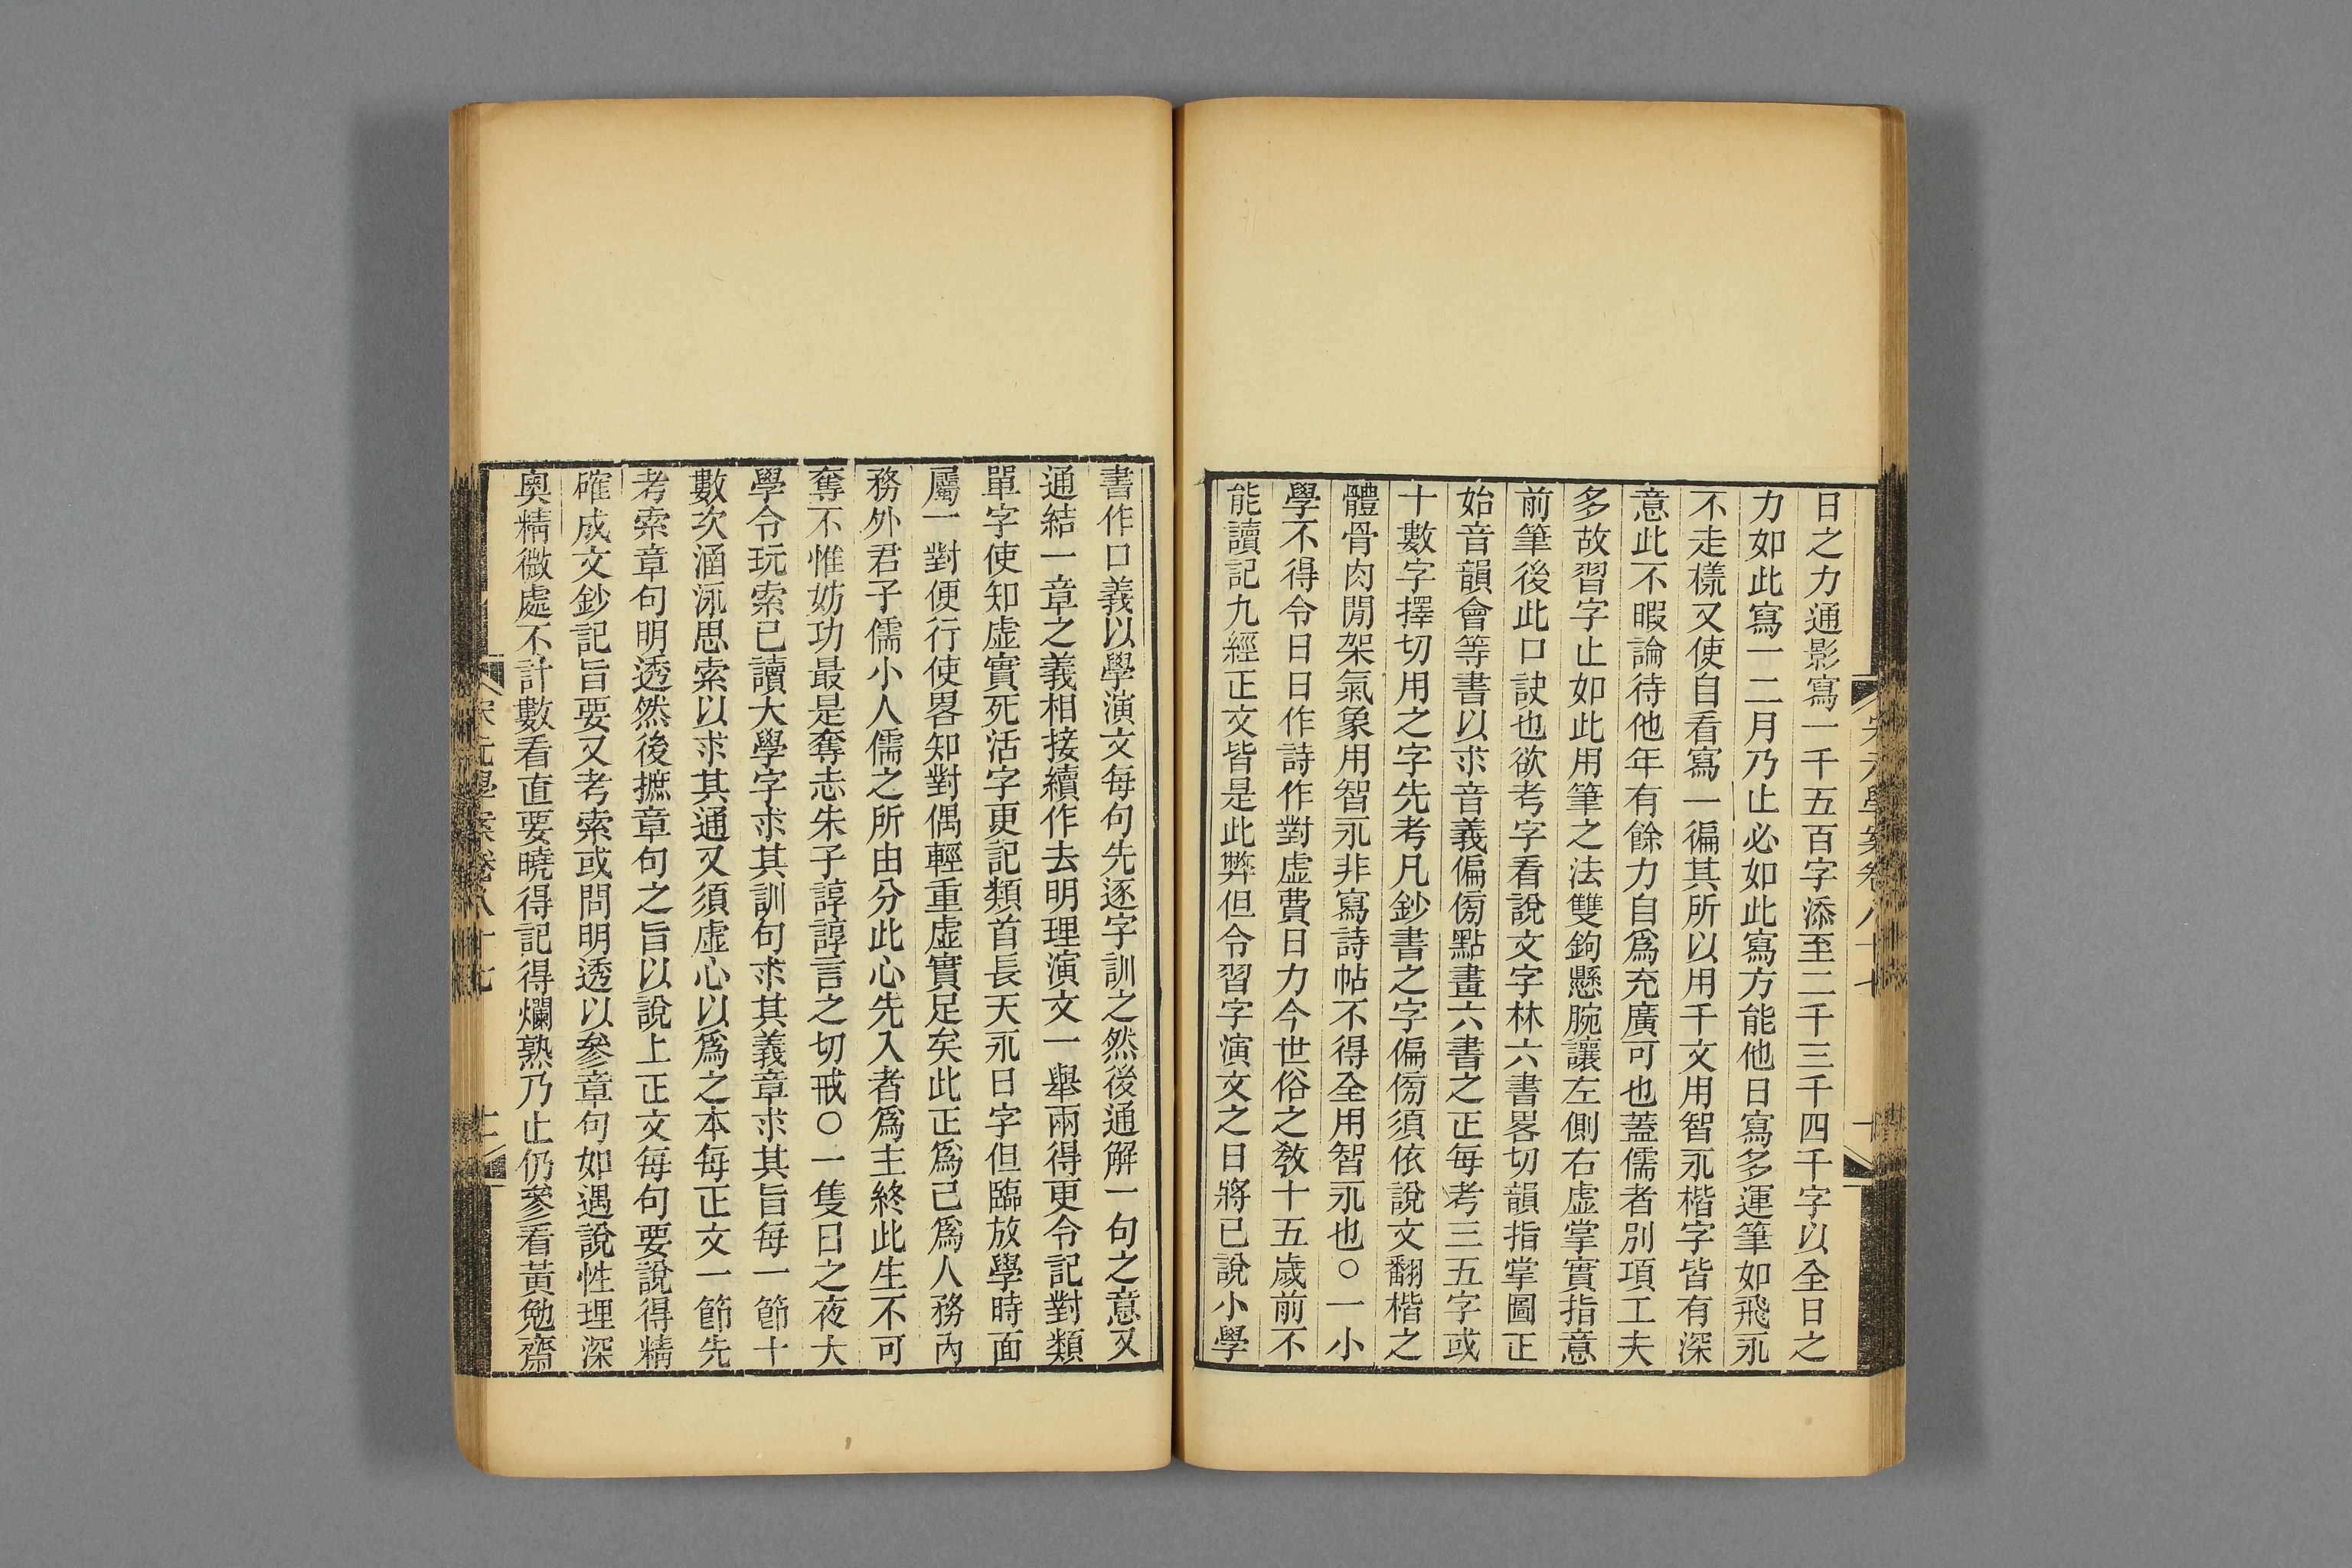 日之力通影寫一千五百字添至二千三千四千字以全日之
力如此寫一二月乃止必如此寫方能他日寫多運筆如飛永
不走㨾又使自看寫一徧其所以用千文用智永楷字皆有深
意此不暇論待他年有餘力自爲充廣可也蓋儒者別項工夫
多故習字止如此用筆之法雙鉤懸腕讓左側右虚掌實指意
前筆後此口訣也欲考字看說文字林六書畧切韻指掌圖正
始音韻會等書以求音義偏傍點畫六書之正每考三五字或
十數字擇切用之字先考凡鈔書之字偏傍須依說文翻楷之
體骨肉閒架氣象用智永非寫詩帖不得全用智永也○一小
學不得令日日作詩作對虚費日力今世俗之教十五歲前不
能讀記九經正文皆是此弊但令習字演文之日將已說小學
書作口義以學演文每句先逐字訓之然後通解一句之意又
通結一章之義相接續作去明理演文一舉兩得更令記對類
單字使知虚實死活字更記類首長天永日字但臨放學時面
屬一對便行使畧知對偶輕重虚實足矣此正爲己爲人務內
務外君子儒小人儒之所由分此心先入者爲主終此生不可
奪不惟妨功最是奪志朱子諄諄言之切戒○一隻日之夜大
學令玩索已讀大學字求其訓句求其義章求其旨每一節十
數次涵泳思索以求其通又須虚心以爲之本每正文一節先
考索章句明透然後摭章句之旨以說上正文每句要說得精
確成文鈔記旨要又考索或問明透以參章句如遇說性理深
奧精微處不計數看直要曉得記得爛熟乃止仍參看黃勉齋
宋元學案卷八十七